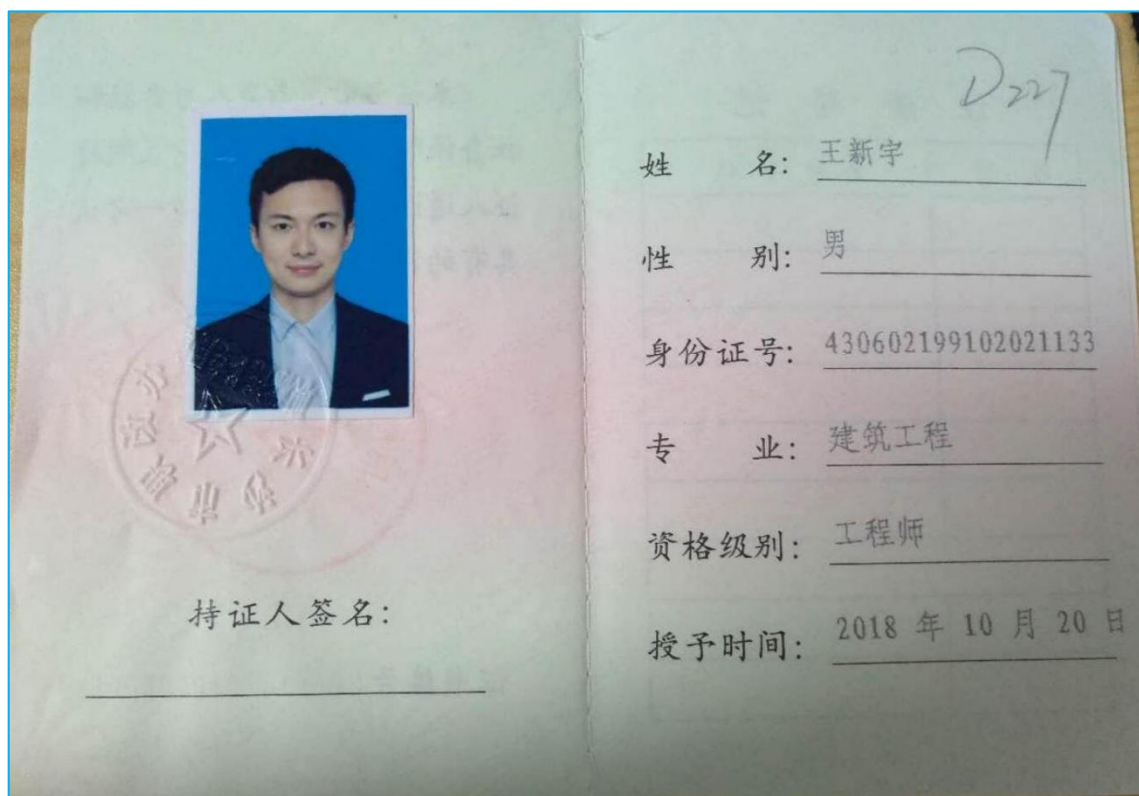 D227
姓名：王新宇
性别：男
身份证号：430602199102021133
专业：建筑工程
资格级别：工程师
授予时间：2018 年 10 月 20 日
持证人签名：